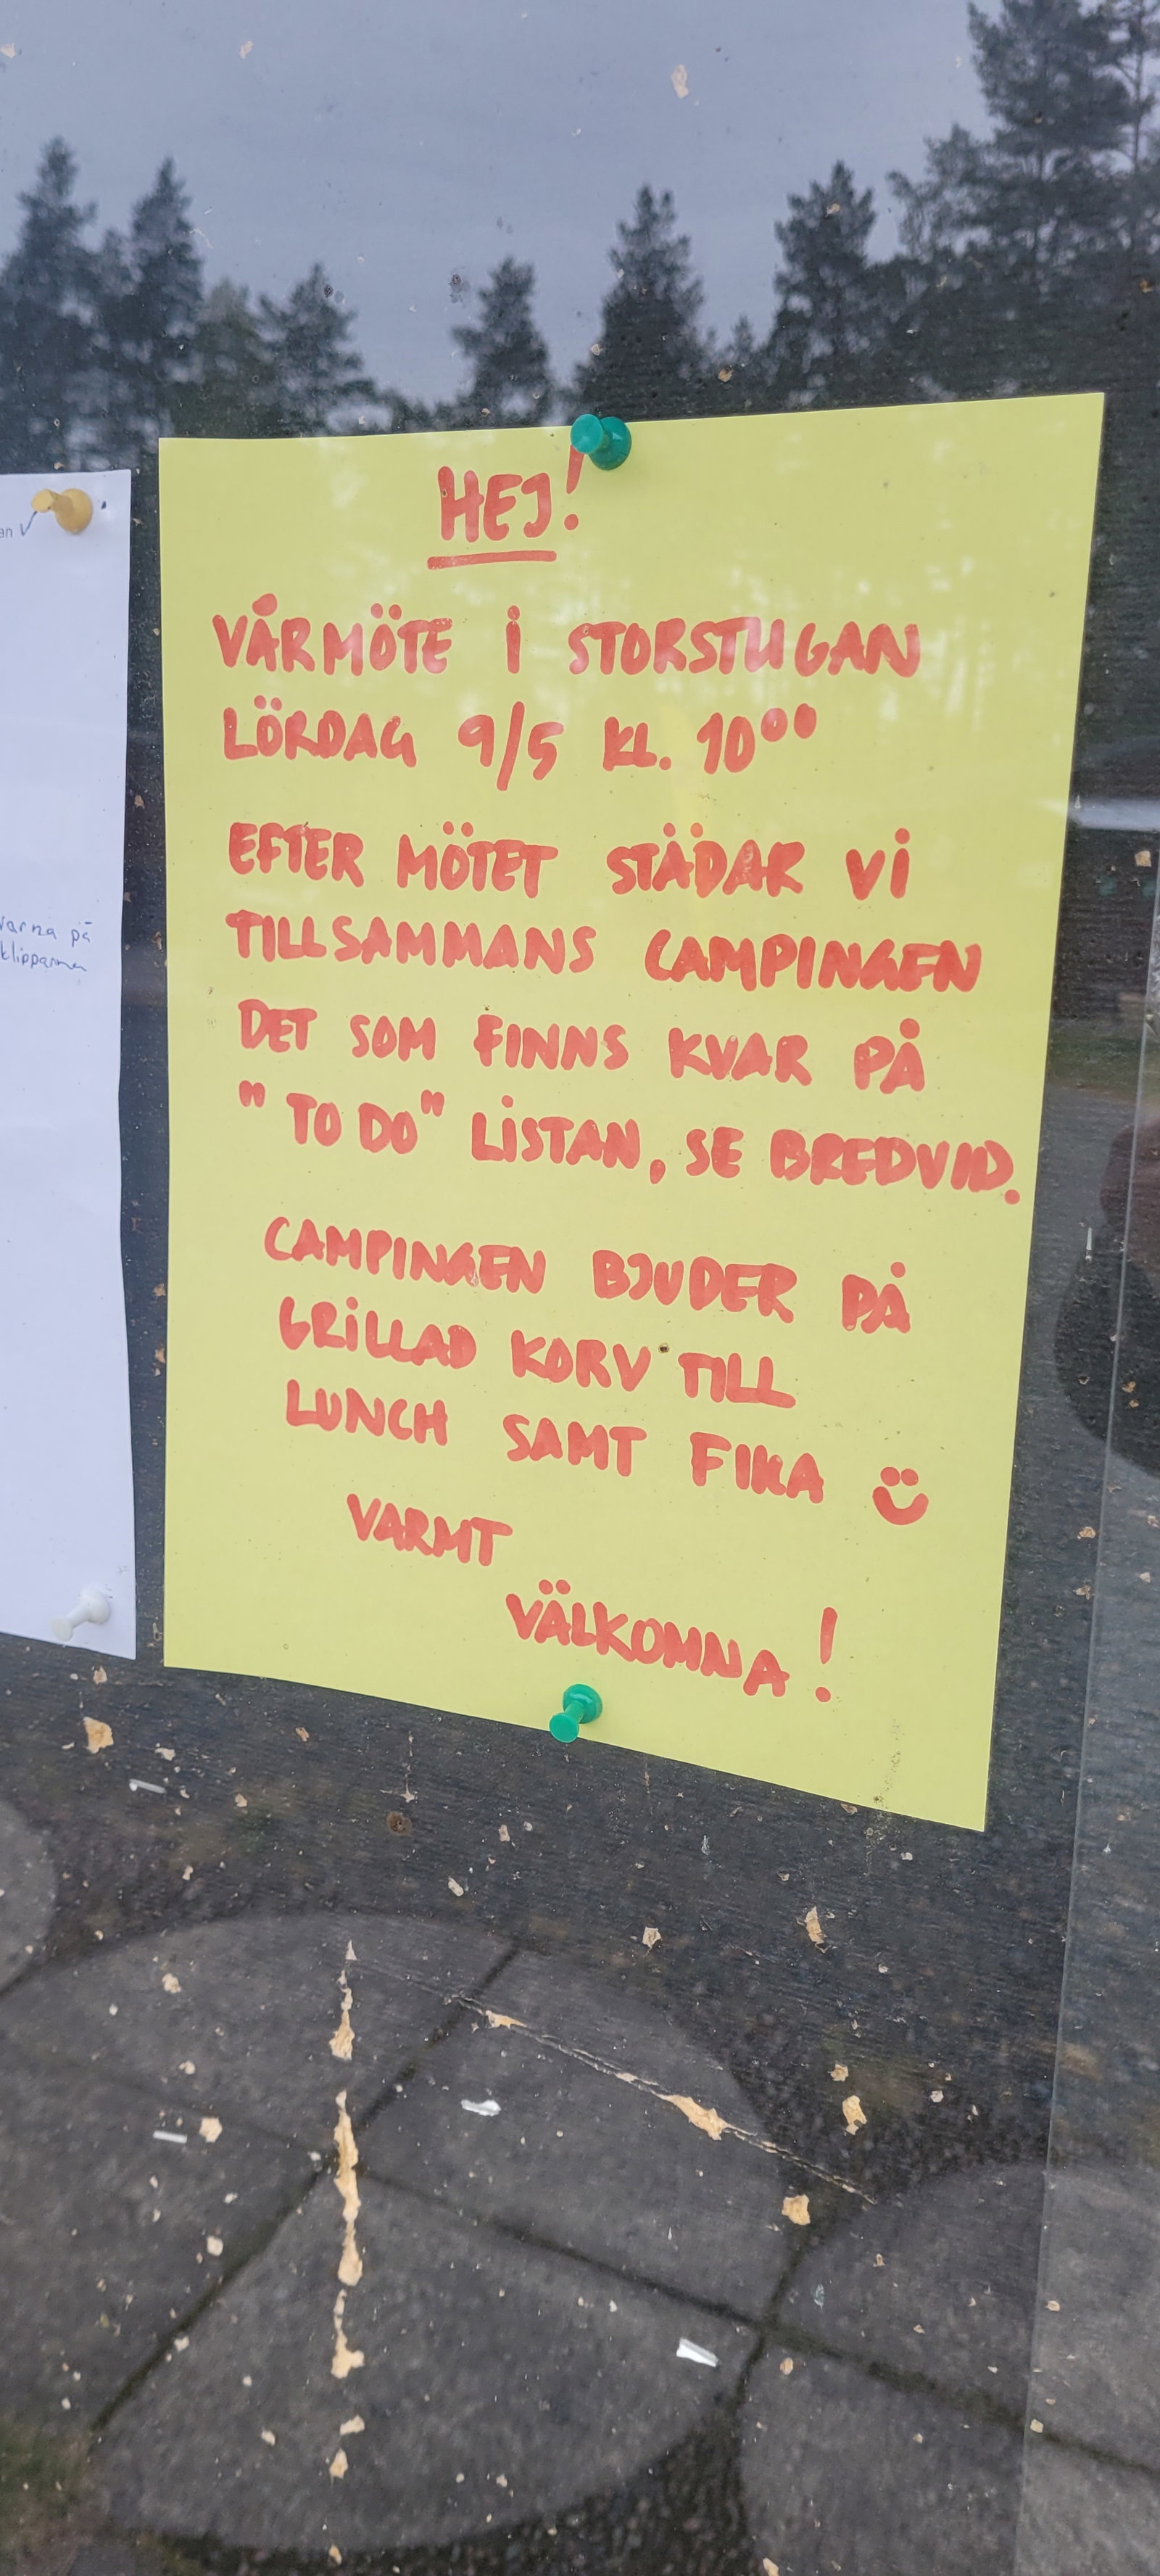 an
varna på
klipparna
HEJ!
VÅRMÖTE I STORSTUGAN
LÖRDAG 9/5 KL. 10⁰⁰
EFTER MÖTET STÄDAR VI
TILLSAMMANS CAMPINGEN
DET SOM FINNS KVAR PÅ
"TO DO" LISTAN, SE BREDVID.
CAMPINGEN BJUDER PÅ
GRILLAD KORV TILL
LUNCH SAMT FIKA
VARMT
VÄLKOMNA!